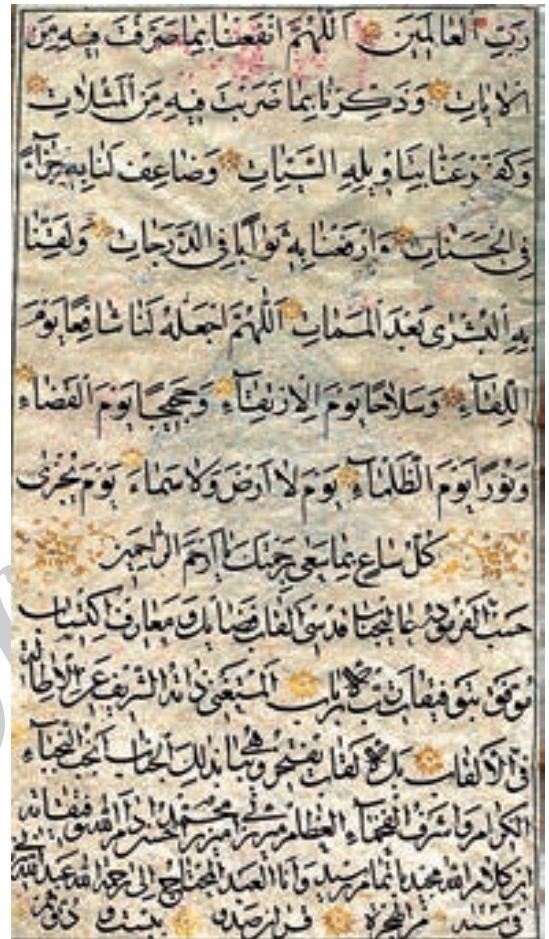 رَبِّ الْعَالَمِينَ اَللّٰهُمَّ انْفَعْنَا بِمَا صَرَّفْتَ فِيهِ مِنَ
الْاٰيَاتِ وَذَكِّرْنَا بِمَا ضَرَبْتَ فِيهِ مِنَ الْمَثُلَاتِ
وَكَفِّرْ عَنَّا بِتِلَاوَتِهِ السَّيِّئَاتِ وَضَاعِفْ لَنَا بِهِ جَزَاءً
فِي الْحَسَنَاتِ وَارْفَعْنَا بِهِ ثَوَابًا فِي الدَّرَجَاتِ وَلَقِّنَا
بِهِ الْبُشْرٰى بَعْدَ الْمَمَاتِ اَللّٰهُمَّ اجْعَلْهُ لَنَا شَافِعًا يَوْمَ
اللِّقَاءِ وَسِلَاحًا يَوْمَ الْاِرْتِقَاءِ وَحَجِيجًا يَوْمَ الْقَضَاءِ
وَنُورًا يَوْمَ الظَّلْمَاءِ يَوْمَ لَا اَرْضَ وَلَا سَمَاءَ يَوْمَ يُجْزٰى
كُلُّ سَاعٍ بِمَا سَعٰى بِرَحْمَتِكَ يَا اَرْحَمَ الرَّاحِمِينَ
حسب الفرموده عاليجناب قدسى القاب فضايل و معارف اكتساب
موفق بتوفيقات رب الارباب المستغنى ذاته الشريف عن الاطالة
فى الالقاب بل الالقاب تفتخر بذلك الجناب انجب النجباء
الكرام و اشرف النجباء العظام ميرزا محمد ادام الله توفيقاته
اين كلام الله مجيد باتمام رسيد وانا العبد المحتاج الى رحمة الله عبد الله
فى سنه من الهجرة ١٢٣٢ قران صد و بيست و دويم